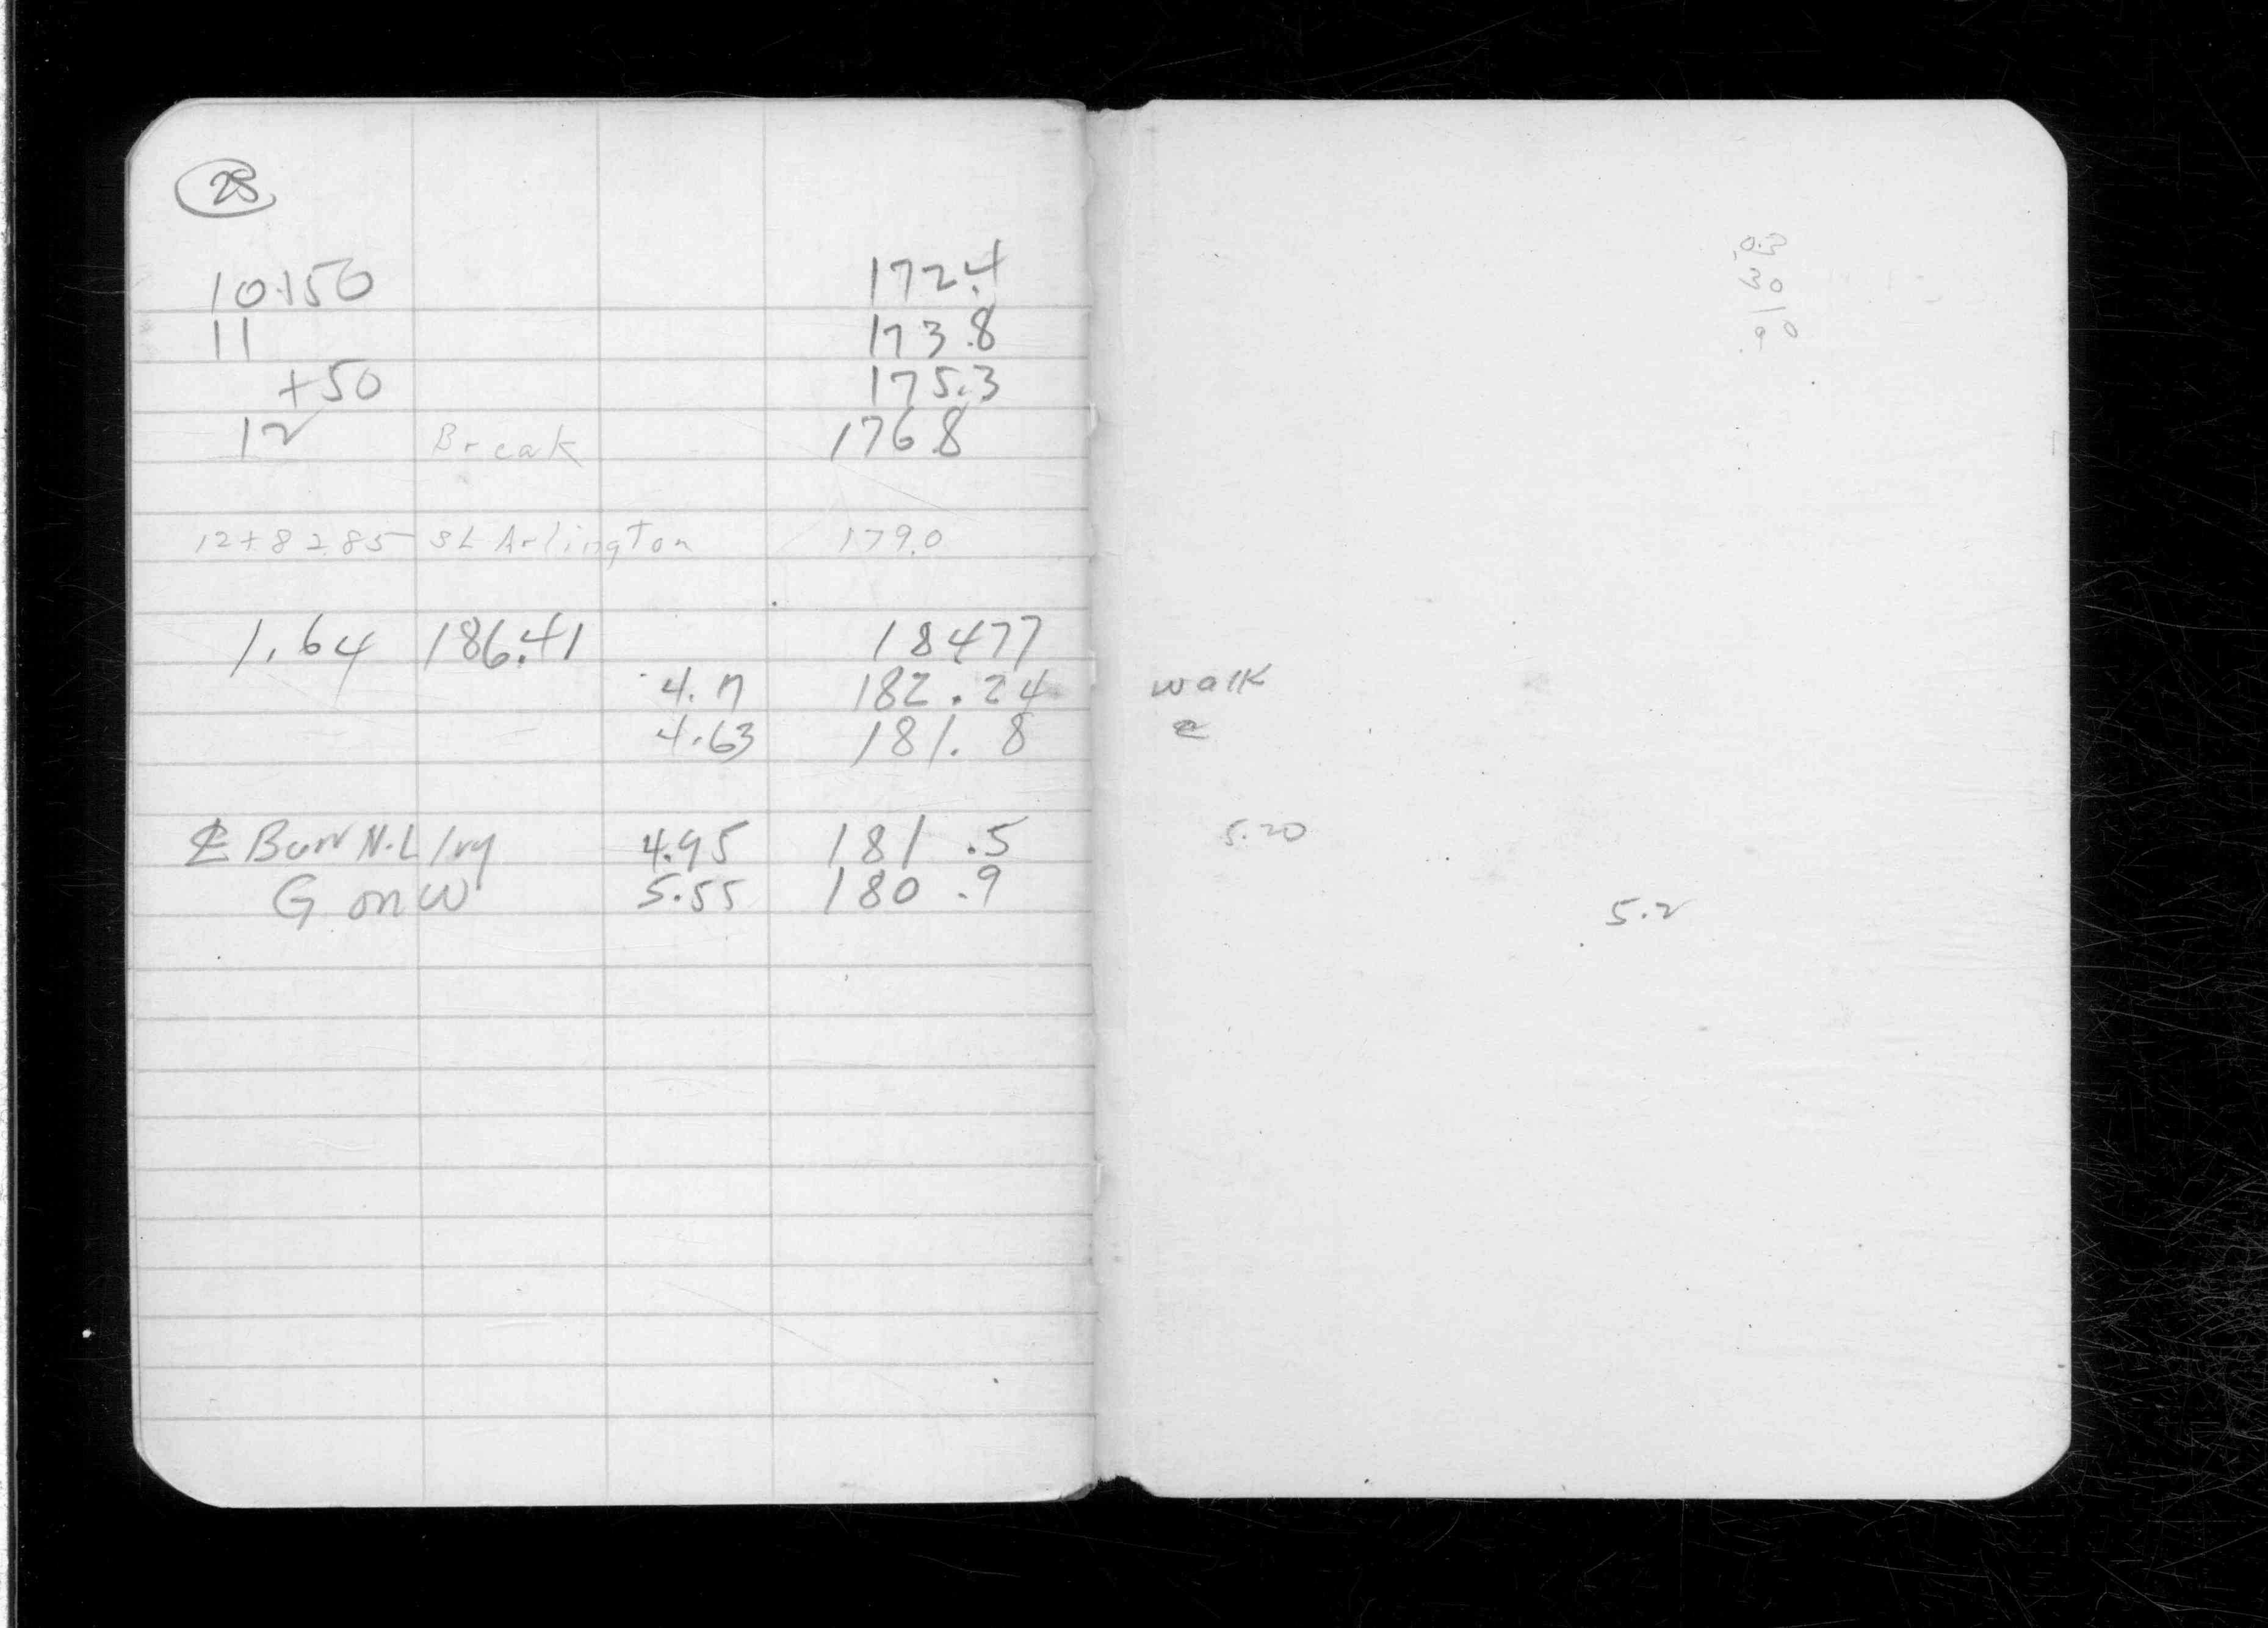 28
10+50 172.4
11 173.8
+50 175.3
12 Break 176.8
12+82.85 SL Arlington 179.0
1.64 186.41 18477
4.17 182.24 walk
4.63 181.8
℄ Burr N.L 4.95 181.5 5.20
G on W 5.55 180.9 5.2